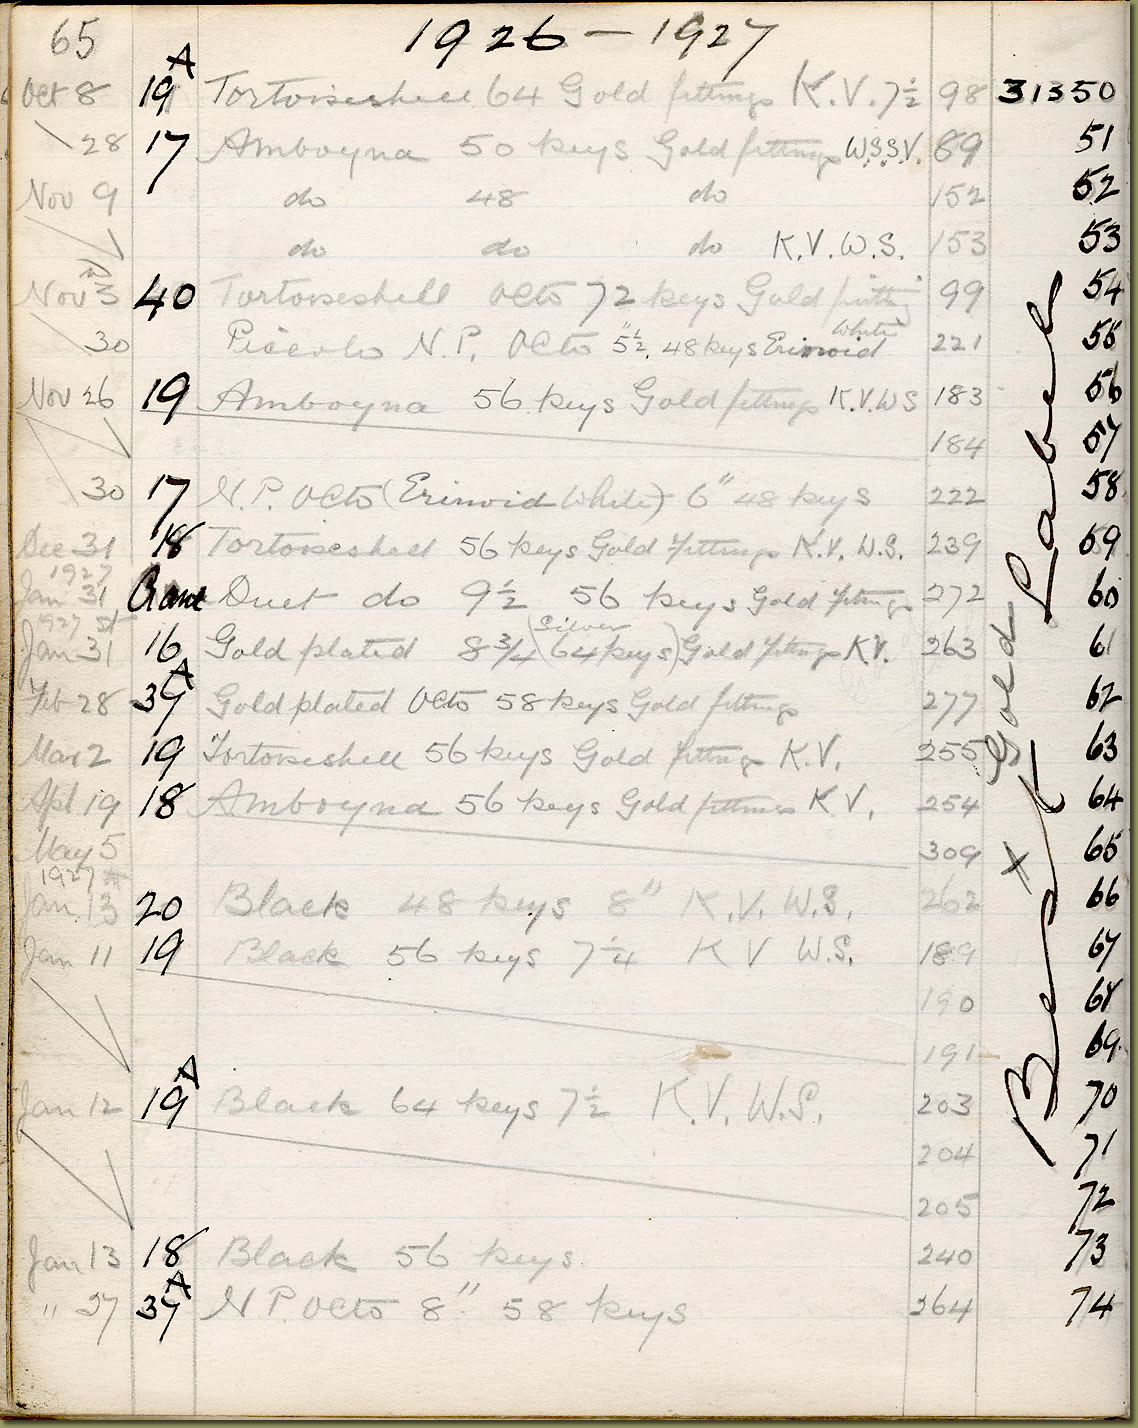 65 1926 – 1927
Oct 8 19A Tortoiseshell 64 Gold fittings K.V. 7½ 98 31350
28 17 Amboyna 50 keys Gold fittings W.S.S.V. 89 51
Nov 9 do 48 do 152 52
do do do K.V.W.S. 153 53
Nov 3 40 Tortoiseshell Octo 72 keys Gold fitting 99 54
30 Piccolo N.P. Octo 5½" 48 keys Erinoid White 221 55
Nov 26 19 Amboyna 56 keys Gold fittings K.V.W.S 183 56
184 57
30 17 N.P. Octo (Erinoid White) 6" 48 keys 222 58
Dec 31 18 Tortoiseshell 56 keys Gold fittings K.V. W.S. 239 59
1927
Jan 31 Crane Duet do 9½ 56 keys Gold fittings 272 60
1927 st Silver
Jan 31 16 Gold plated 8¾ (64 keys) Gold fittings K.V. 263 61
Feb 28 37A Gold plated Octo 58 keys Gold fittings 277 62
Mar 2 19 Tortoiseshell 56 keys Gold fittings K.V. 255 63
Apl 19 18 Amboyna 56 keys Gold fittings K.V. 254 64
May 5 309 65
1927
Jan 13 20 Black 48 keys 8" K.V. W.S. 262 66
Jan 11 19 Black 56 keys 7¼ K V W.S. 189 67
190 68
191 69
Jan 12 19A Black 64 keys 7½ K.V. W.S. 203 70
204 71
205 72
Jan 13 18 Black 56 keys 240 73
" 27 37A N P. Octo 8" 58 keys 264 74
Best x Gold Labels